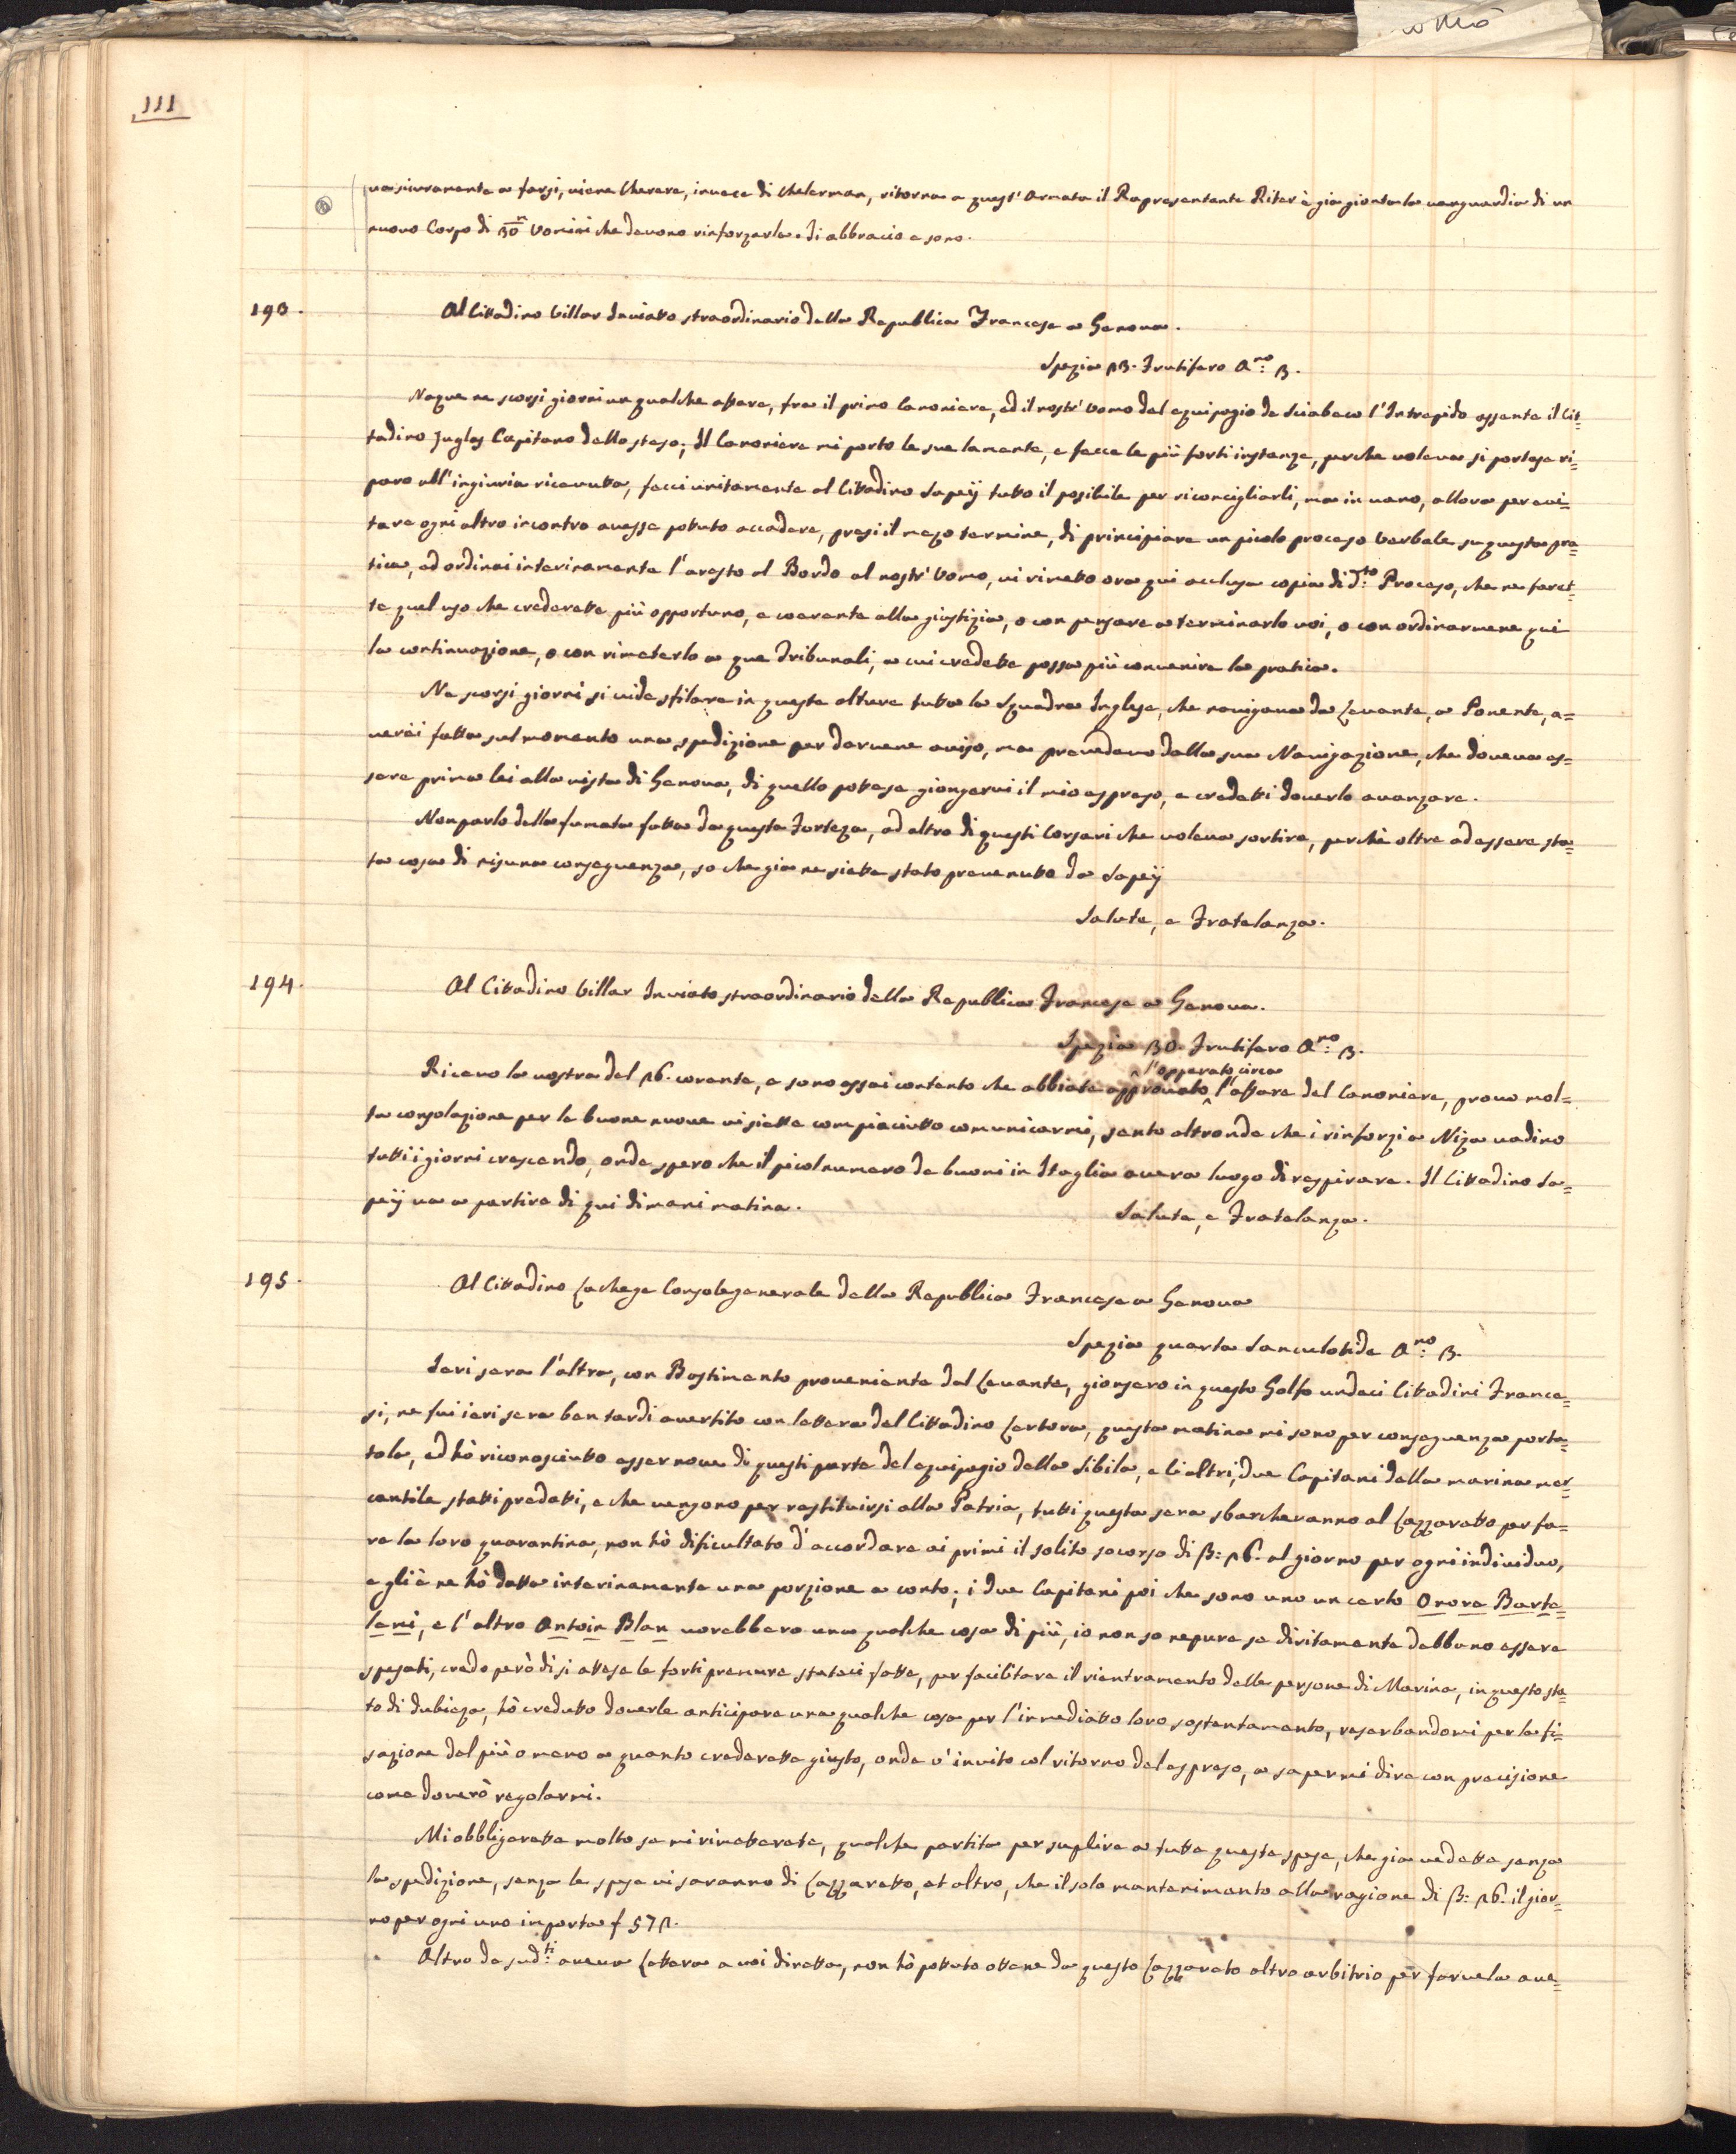 111
va sicuramente a farsi, viene Cherere, invece di Chelerman, ritorna a quest' Armata il Rapresentante Riter è gia gionta la vanguardia di un
nuovo Corpo di 30n Uomini che devono rinforzarla. Di abbracio e sono.
193.
Al Cittadino Villar Inviatto straordinario della Republica Francese a Genova.
Spezia 23. Frutifero Ano: 3.
Naque ne scorsi giorni un qualche affare, fra il primo Canoniere, ed il nostr' Uomo del equipagio de Sciabeco l'Intrepido assente il Cit=
tadino Juglas Capitano dello steso; Il Canoniere mi porto le sue lamente, e fecce le più forti instanze, perche voleva si portase ri=
paro all' ingiuria ricevutta, fecci unitamente al Cittadino Sapeij tutto il posibile per riconcigliarli, ma in vano, allora per evi=
tare ogni altro incontro avesse potuto accadere, presi il mezo termine, di principiare un picolo proceso verbale su questa pra=
tica, ed ordinai interinamente l'aresto al Bordo al nostr' Uomo, vi rimetto ora qui acclusa copia di dto: Proceso, che ne faret=
te quel uso che crederette più opportuno, e coerente alla giustizia, o con pensare a terminarlo voi, o con ordinarmene qui
la continuazione, o con rimeterlo a que Tribunali, a cui credette possa più convenire la pratica.
Ne scorsi giorni si vide sfilare in queste alture tutta la Squadra Inglese, che navigava da Levante, a Ponente, a=
verei fatta sul momento una spedizione per darvene aviso, ma prevedevo dalla sua Navigazione, che doveva es=
sere prima lei alla vista di Genova, di quello potese giongervi il mio espreso, e credetti doverlo avanzare.
Non parlo della fumata fatta da questa Forteza, ad altro di questi Corsari che voleva sortire, perchè oltre ad essere sta=
ta cosa di nisuna conseguenza, so che gia ne siette stato prevenutto da Sapeij
Salute, e Fratelanza.
194.
Al Cittadino Villar Inviato straordinario della Republica Francese a Genova.
Spezia 30. Frutifero Ano: 3.
l'opperato circa
Ricevo la vostra del 26. corente, e sono assai contento che abbiate approvato l'affare del Canoniere, provo mol=
ta consolazione per le buone nuove vi siette compiaciutto comunicarmi, sento altronde che i rinforzi a Niza vadino
tutti i giorni crescendo, onde spero che il picol numero de buoni in Itaglia avera luogo di respirare. Il Cittadino Sa=
peij va a partire di qui dimani matina.
Salute, e Fratelanza.
195.
Al Cittadino Lachege Console generale della Republica Francese a Genova
Spezia quarta Sanculotide Ano: 3.
Ieri sera l'altra, con Bastimento proveniente dal Levante, gionsero in questo Golfo undeci Cittadini France=
si, ne fui ieri sera ben tardi avertito con lettera del Cittadino Cartora, questa matina mi sono per conseguenza porta=
tola, ed hò riconosciutto esser nove di questi parte del equipagio della Sibila, e li altri, due Capitani della marina mer=
cantile statti predatti, e che vengono per restituirsi alla Patria, tutti questa sera sbarcheranno al Lazzaretto per fa=
re la loro quarantina, non hò dificultato d'accordare ai primi il solito socorso di ß: 26. al giorno per ogni individuo,
e gli è ne hò datta interinamente una porzione a conto; i due Capitani poi che sono uno un certo Onora Barte=
lemi, e l'altro Antoin Blan vorebbero una qualche cosa di più, io non so nepure se diritamente debbano essere
spesati, credo però di si attese le forti premure stateci fatte, per facilitare il rientramento delle persone di Marina, in questo sta=
to di dubieza, hò credutto doverle anticipare una qualche cosa per l'immediatto loro sostentamento, reserbandomi per la fi=
sazione del più o meno a quanto crederette giusto, onde v'invito col ritorno del espreso, a sapermi dire con precisione
come doverò regolarmi.
Mi obbligarette molto se mi rimetterete, qualche partita per suplire a tutte queste spese, che gia vedette senza
la spedizione, senza le spese vi saranno di Lazzaretto, et altro, che il solo mantenimento alla ragione di ß: 26. il gior=
no per ogni uno importa f 572.
Altro de sudti: aveva Lettera a voi diretta, non hò pottuto ottene da questo Lazzareto altro arbitrio per farvela ave=